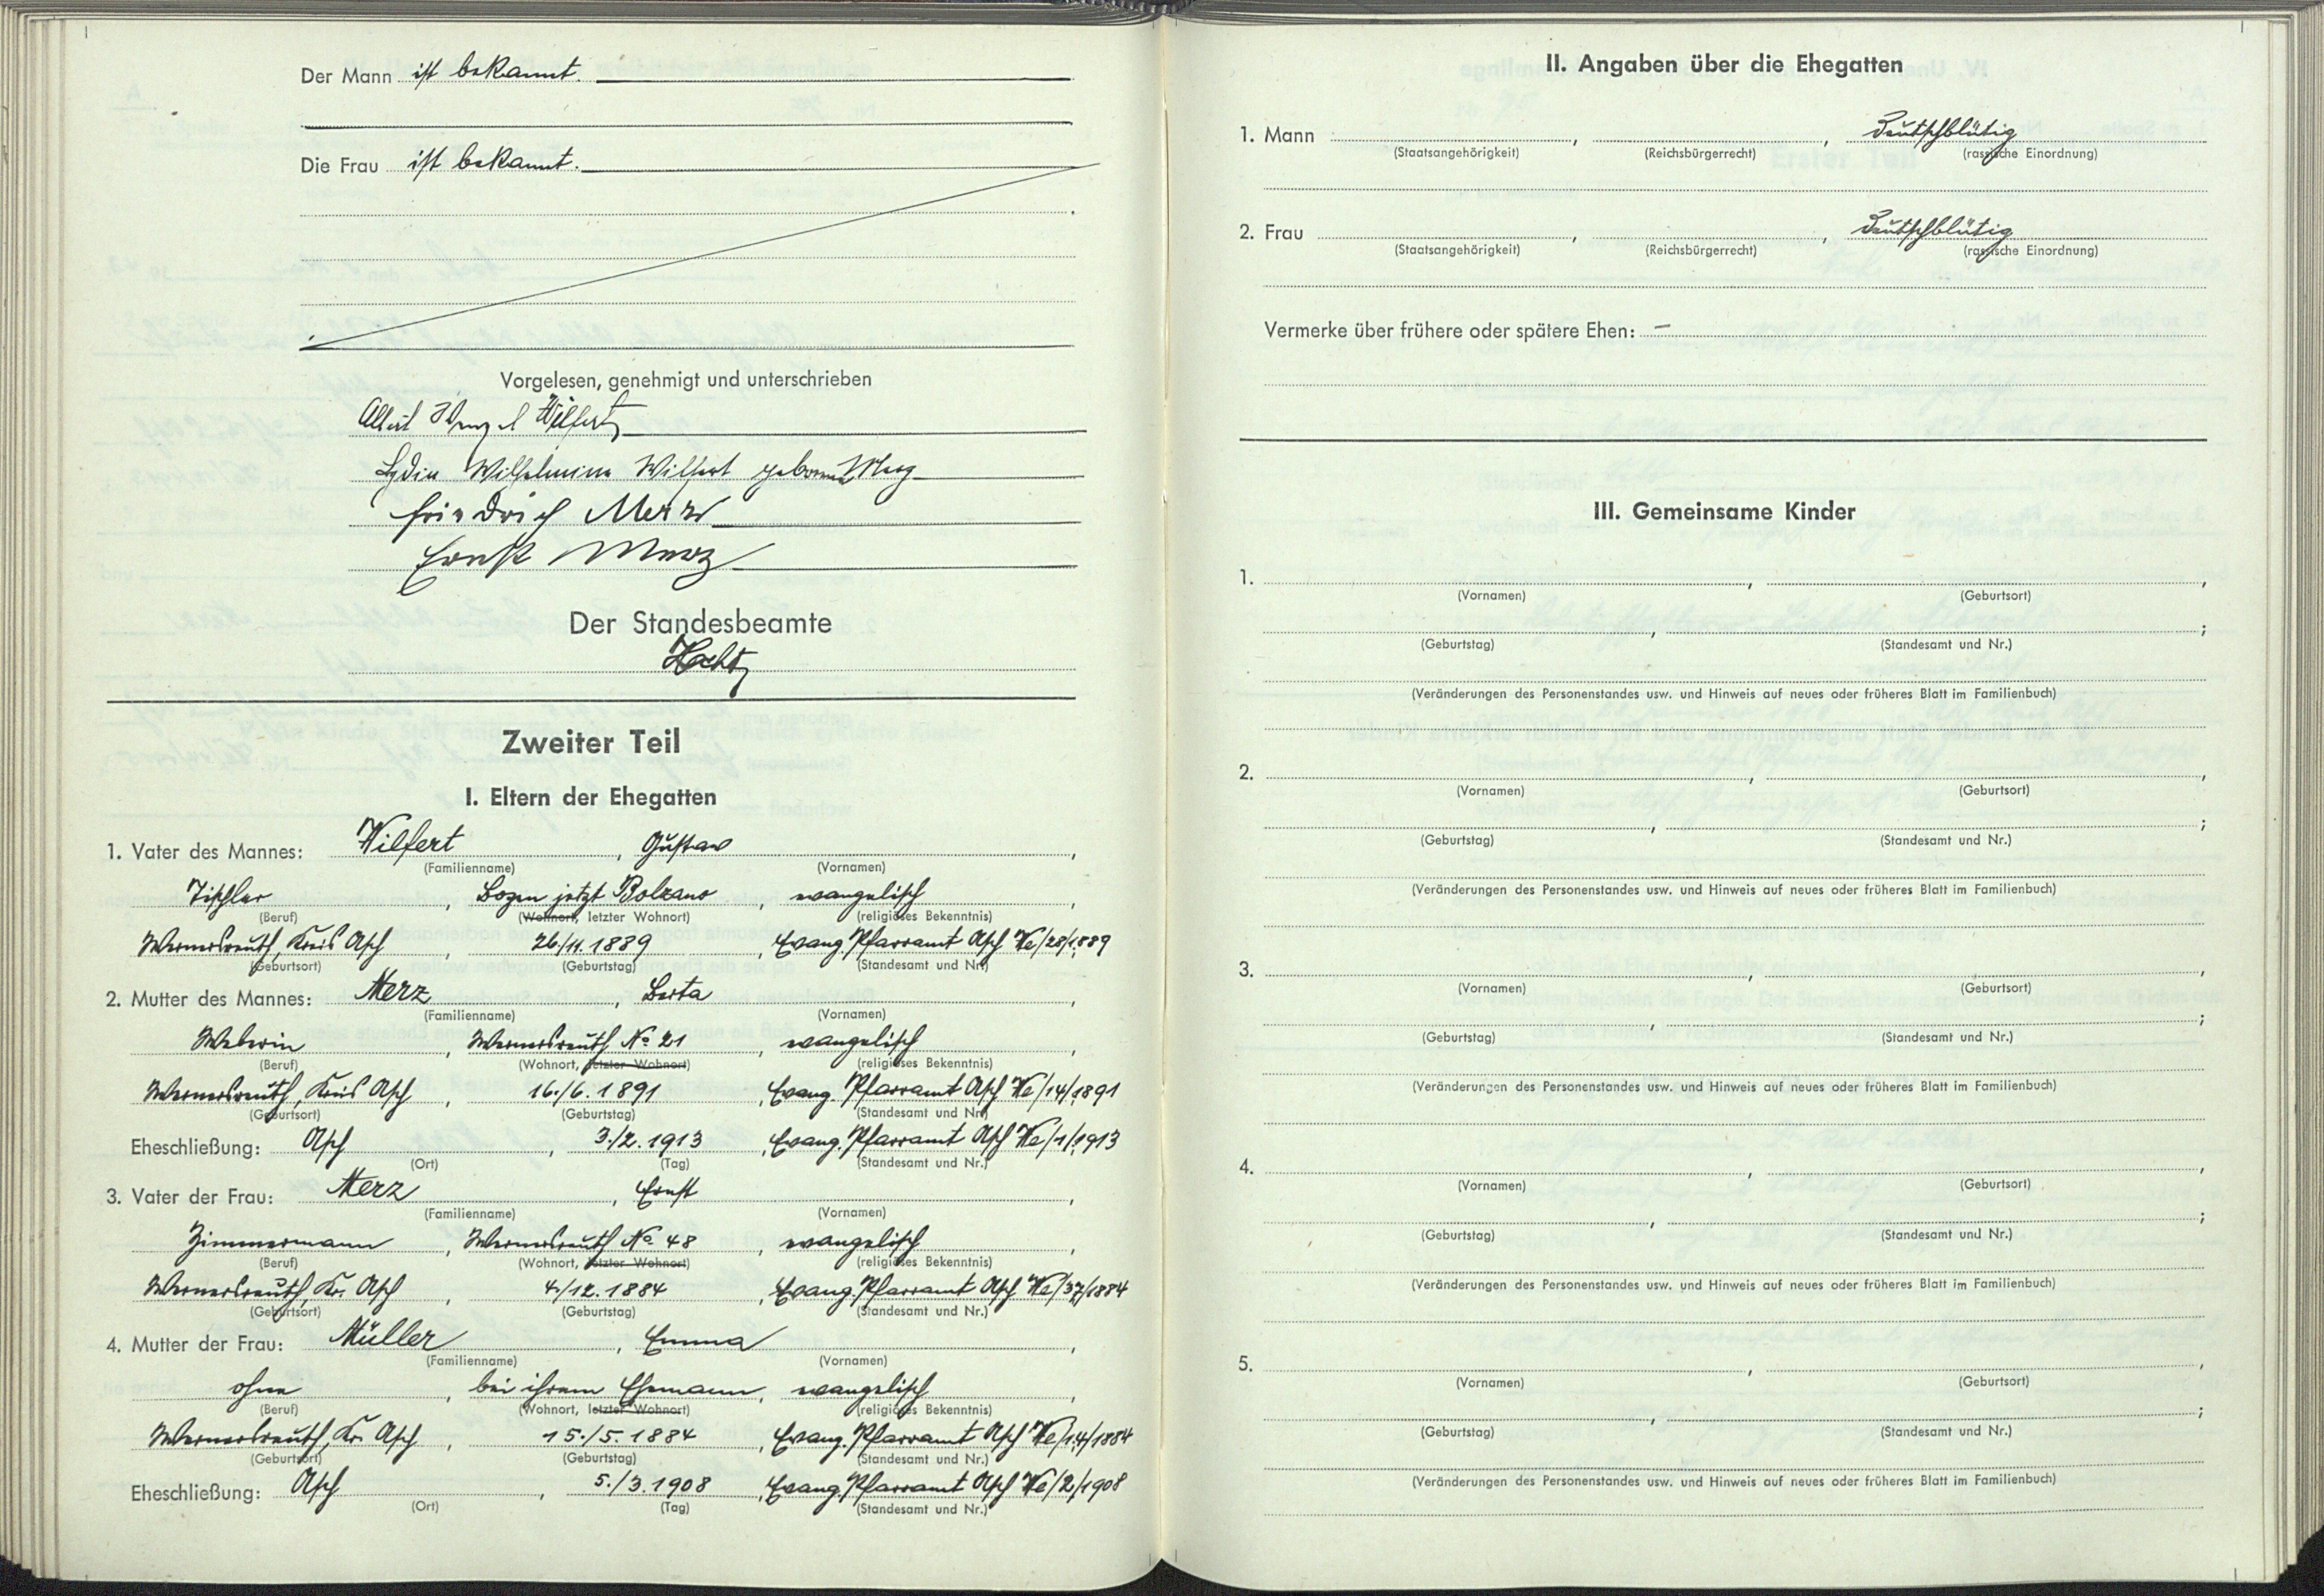 Der Mann ist bekannt.
Die Frau ist bekannt.
Vorgelesen, genehmigt und unterschrieben
Albert Wenzel Wilfert
Lydia Wilhelmina Wilfert geborene Merz
Friedrich Merz
Ernst Merz
Der Standesbeamte
Zweiter Teil
I. Eltern der Ehegatten
1. Vater des Mannes: Wilfert, Gustav,
(Familienname) (Vornamen)
Tischler, Bozen jetzt Bolzano, evangelisch,
(Beruf) (Wohnort, letzter Wohnort) (religiöses Bekenntnis)
Wernersreuth, Kreis Asch, 26./11.1889, Evang. Pfarramt Asch We/28/1889
(Geburtsort) (Geburtstag) (Standesamt und Nr.)
2. Mutter des Mannes: Merz, Berta,
(Familienname) (Vornamen)
Weberin, Wernersreuth No 21, evangelisch,
(Beruf) (Wohnort, letzter Wohnort) (religiöses Bekenntnis)
Wernersreuth, Kreis Asch, 16./6.1891, Evang. Pfarramt Asch We/14/1891
(Geburtsort) (Geburtstag) (Standesamt und Nr.)
Eheschließung: Asch, 3./2.1913, Evang. Pfarramt Asch We/1/1913
(Ort) (Tag) (Standesamt und Nr.)
3. Vater der Frau: Merz, Ernst,
(Familienname) (Vornamen)
Zimmermann, Wernersreuth No 48, evangelisch,
(Beruf) (Wohnort, letzter Wohnort) (religiöses Bekenntnis)
Wernersreuth, Kr. Asch, 4./12.1884, Evang. Pfarramt Asch We/37/1884
(Geburtsort) (Geburtstag) (Standesamt und Nr.)
4. Mutter der Frau: Müller, Emma,
(Familienname) (Vornamen)
ohne, bei ihrem Ehemann, evangelisch,
(Beruf) (Wohnort, letzter Wohnort) (religiöses Bekenntnis)
Wernersreuth, Kr. Asch, 15./5.1884, Evang. Pfarramt Asch We/14/1884
(Geburtsort) (Geburtstag) (Standesamt und Nr.)
Eheschließung: Asch, 5./3.1908, Evang. Pfarramt Asch We/2/1908
(Ort) (Tag) (Standesamt und Nr.)
II. Angaben über die Ehegatten
1. Mann , , Deutschblütig
(Staatsangehörigkeit) (Reichsbürgerrecht) (rassische Einordnung)
2. Frau , , Deutschblütig
(Staatsangehörigkeit) (Reichsbürgerrecht) (rassische Einordnung)
Vermerke über frühere oder spätere Ehen: –
III. Gemeinsame Kinder
1. , ,
(Vornamen) (Geburtsort)
, ;
(Geburtstag) (Standesamt und Nr.)
(Veränderungen des Personenstandes usw. und Hinweis auf neues oder früheres Blatt im Familienbuch)
2. , ,
(Vornamen) (Geburtsort)
, ;
(Geburtstag) (Standesamt und Nr.)
(Veränderungen des Personenstandes usw. und Hinweis auf neues oder früheres Blatt im Familienbuch)
3. , ,
(Vornamen) (Geburtsort)
, ;
(Geburtstag) (Standesamt und Nr.)
(Veränderungen des Personenstandes usw. und Hinweis auf neues oder früheres Blatt im Familienbuch)
4. , ,
(Vornamen) (Geburtsort)
, ;
(Geburtstag) (Standesamt und Nr.)
(Veränderungen des Personenstandes usw. und Hinweis auf neues oder früheres Blatt im Familienbuch)
5. , ,
(Vornamen) (Geburtsort)
, ;
(Geburtstag) (Standesamt und Nr.)
(Veränderungen des Personenstandes usw. und Hinweis auf neues oder früheres Blatt im Familienbuch)